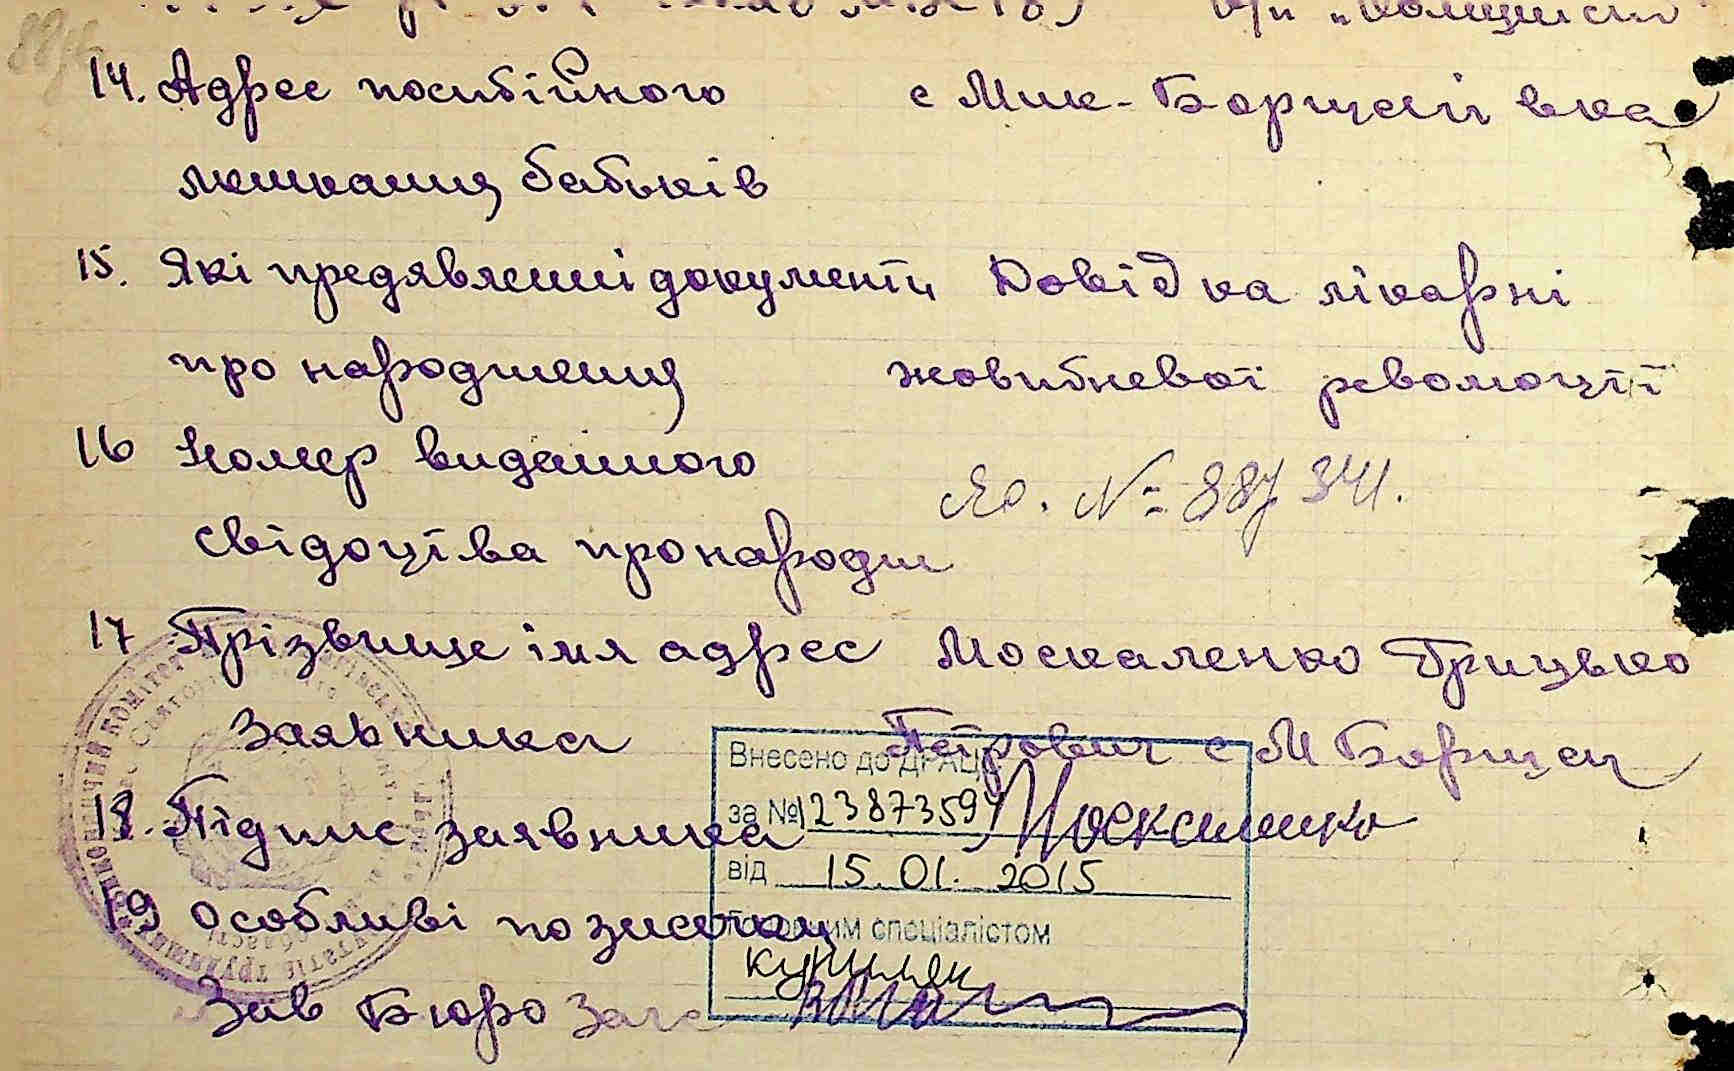 14. Адрес постійного с Мик-Борщагівка
мешкання батьків
15. Які предявлені документи Довідка лікарні
про народження жовтневої революції
16 Номер виданого ЯО. № 887341.
свідоцтва про народж
17 Прізвище імя адрес Москаленко Грицько
заявника Петрович с М Борщаг
18. Підпис заявника Москаленко
19 Особливі позначки
Зав Бюро Загс
Внесено до ДРАЦС
за № 23873594
від 15.01.2015
Головним спеціалістом